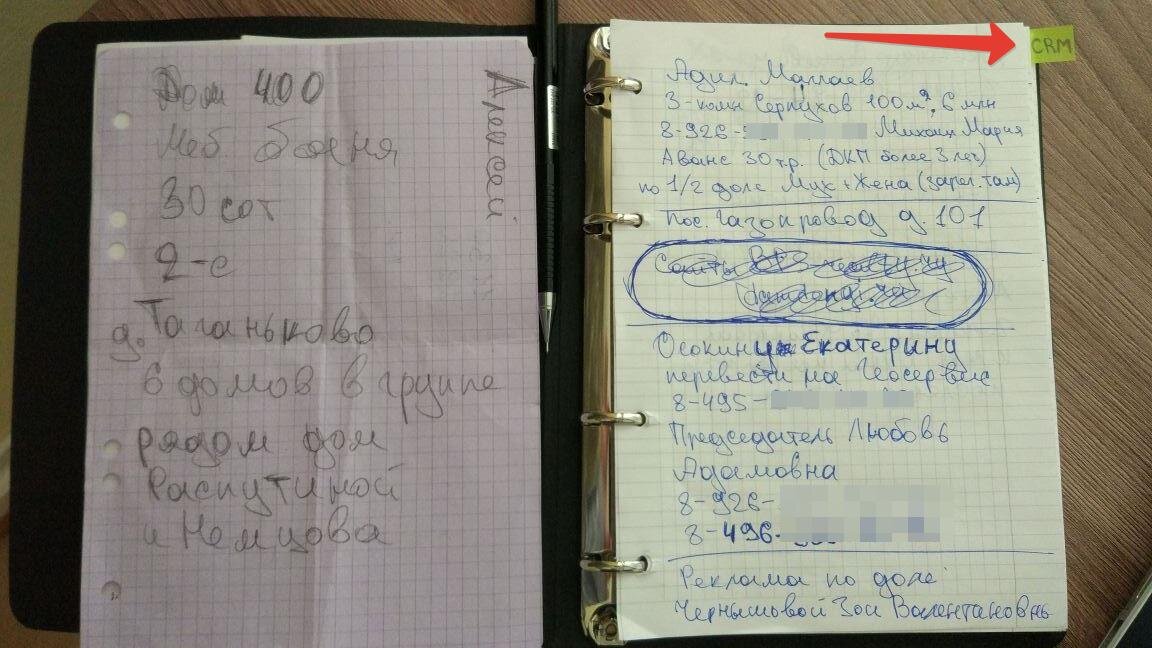 Дом 400
Меб. баня
30 сот
2-е
д. Таганьково
6 домов в группе
рядом дом
Распутиной
и Немцова
Алексей
CRM
Адил
3-комн Серпухов 100 м², 6 млн
8-926- Михаил Мария
Аванс 30 т.р. (ДКП более 3 лет)
по 1/2 доле Муж + Жена (зарег. там)
Пос. Газопровод д. 101
Осокину Екатерину
перевести на Геосервис
8-495-
Председатель Любовь
Адамовна
8-926-
8-496-
Реклама по доле
Чернышовой Зои Валентановнь